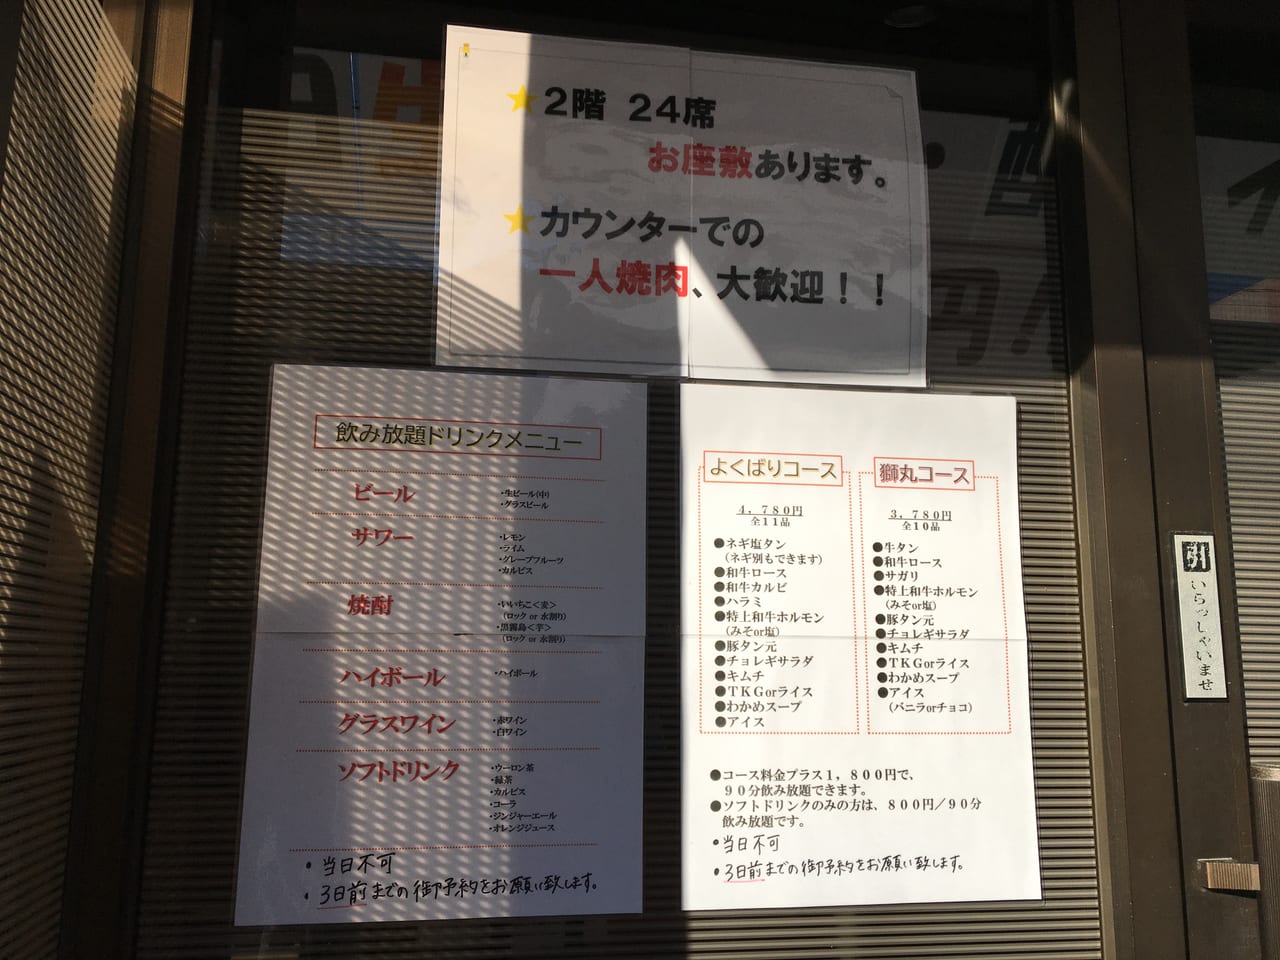 ★2階 24席
お座敷あります。
★カウンターでの
一人焼肉、大歓迎！！
飲み放題ドリンクメニュー
ビール
・生ビール(中)
・グラスビール
サワー
・レモン
・ライム
・グレープフルーツ
・カルピス
焼酎
・いいちこ＜麦＞
(ロック or 水割り)
・黒霧島＜芋＞
(ロック or 水割り)
ハイボール
・ハイボール
グラスワイン
・赤ワイン
・白ワイン
ソフトドリンク
・ウーロン茶
・緑茶
・カルピス
・コーラ
・ジンジャーエール
・オレンジジュース
・当日不可
・3日前までの御予約をお願い致します。
よくばりコース
４，７８０円
全１１品
●ネギ塩タン
（ネギ別もできます）
●和牛ロース
●和牛カルビ
●ハラミ
●特上和牛ホルモン
（みそor塩）
●豚タン元
●チョレギサラダ
●キムチ
●ＴＫＧorライス
●わかめスープ
●アイス
獅丸コース
３，７８０円
全１０品
●牛タン
●和牛ロース
●サガリ
●特上和牛ホルモン
（みそor塩）
●豚タン元
●チョレギサラダ
●キムチ
●ＴＫＧorライス
●わかめスープ
●アイス
（バニラorチョコ）
●コース料金プラス１，８００円で、
９０分飲み放題できます。
●ソフトドリンクのみの方は、８００円／９０分
飲み放題です。
・当日不可
・3日前までの御予約をお願い致します。
引
いらっしゃいませ
円!